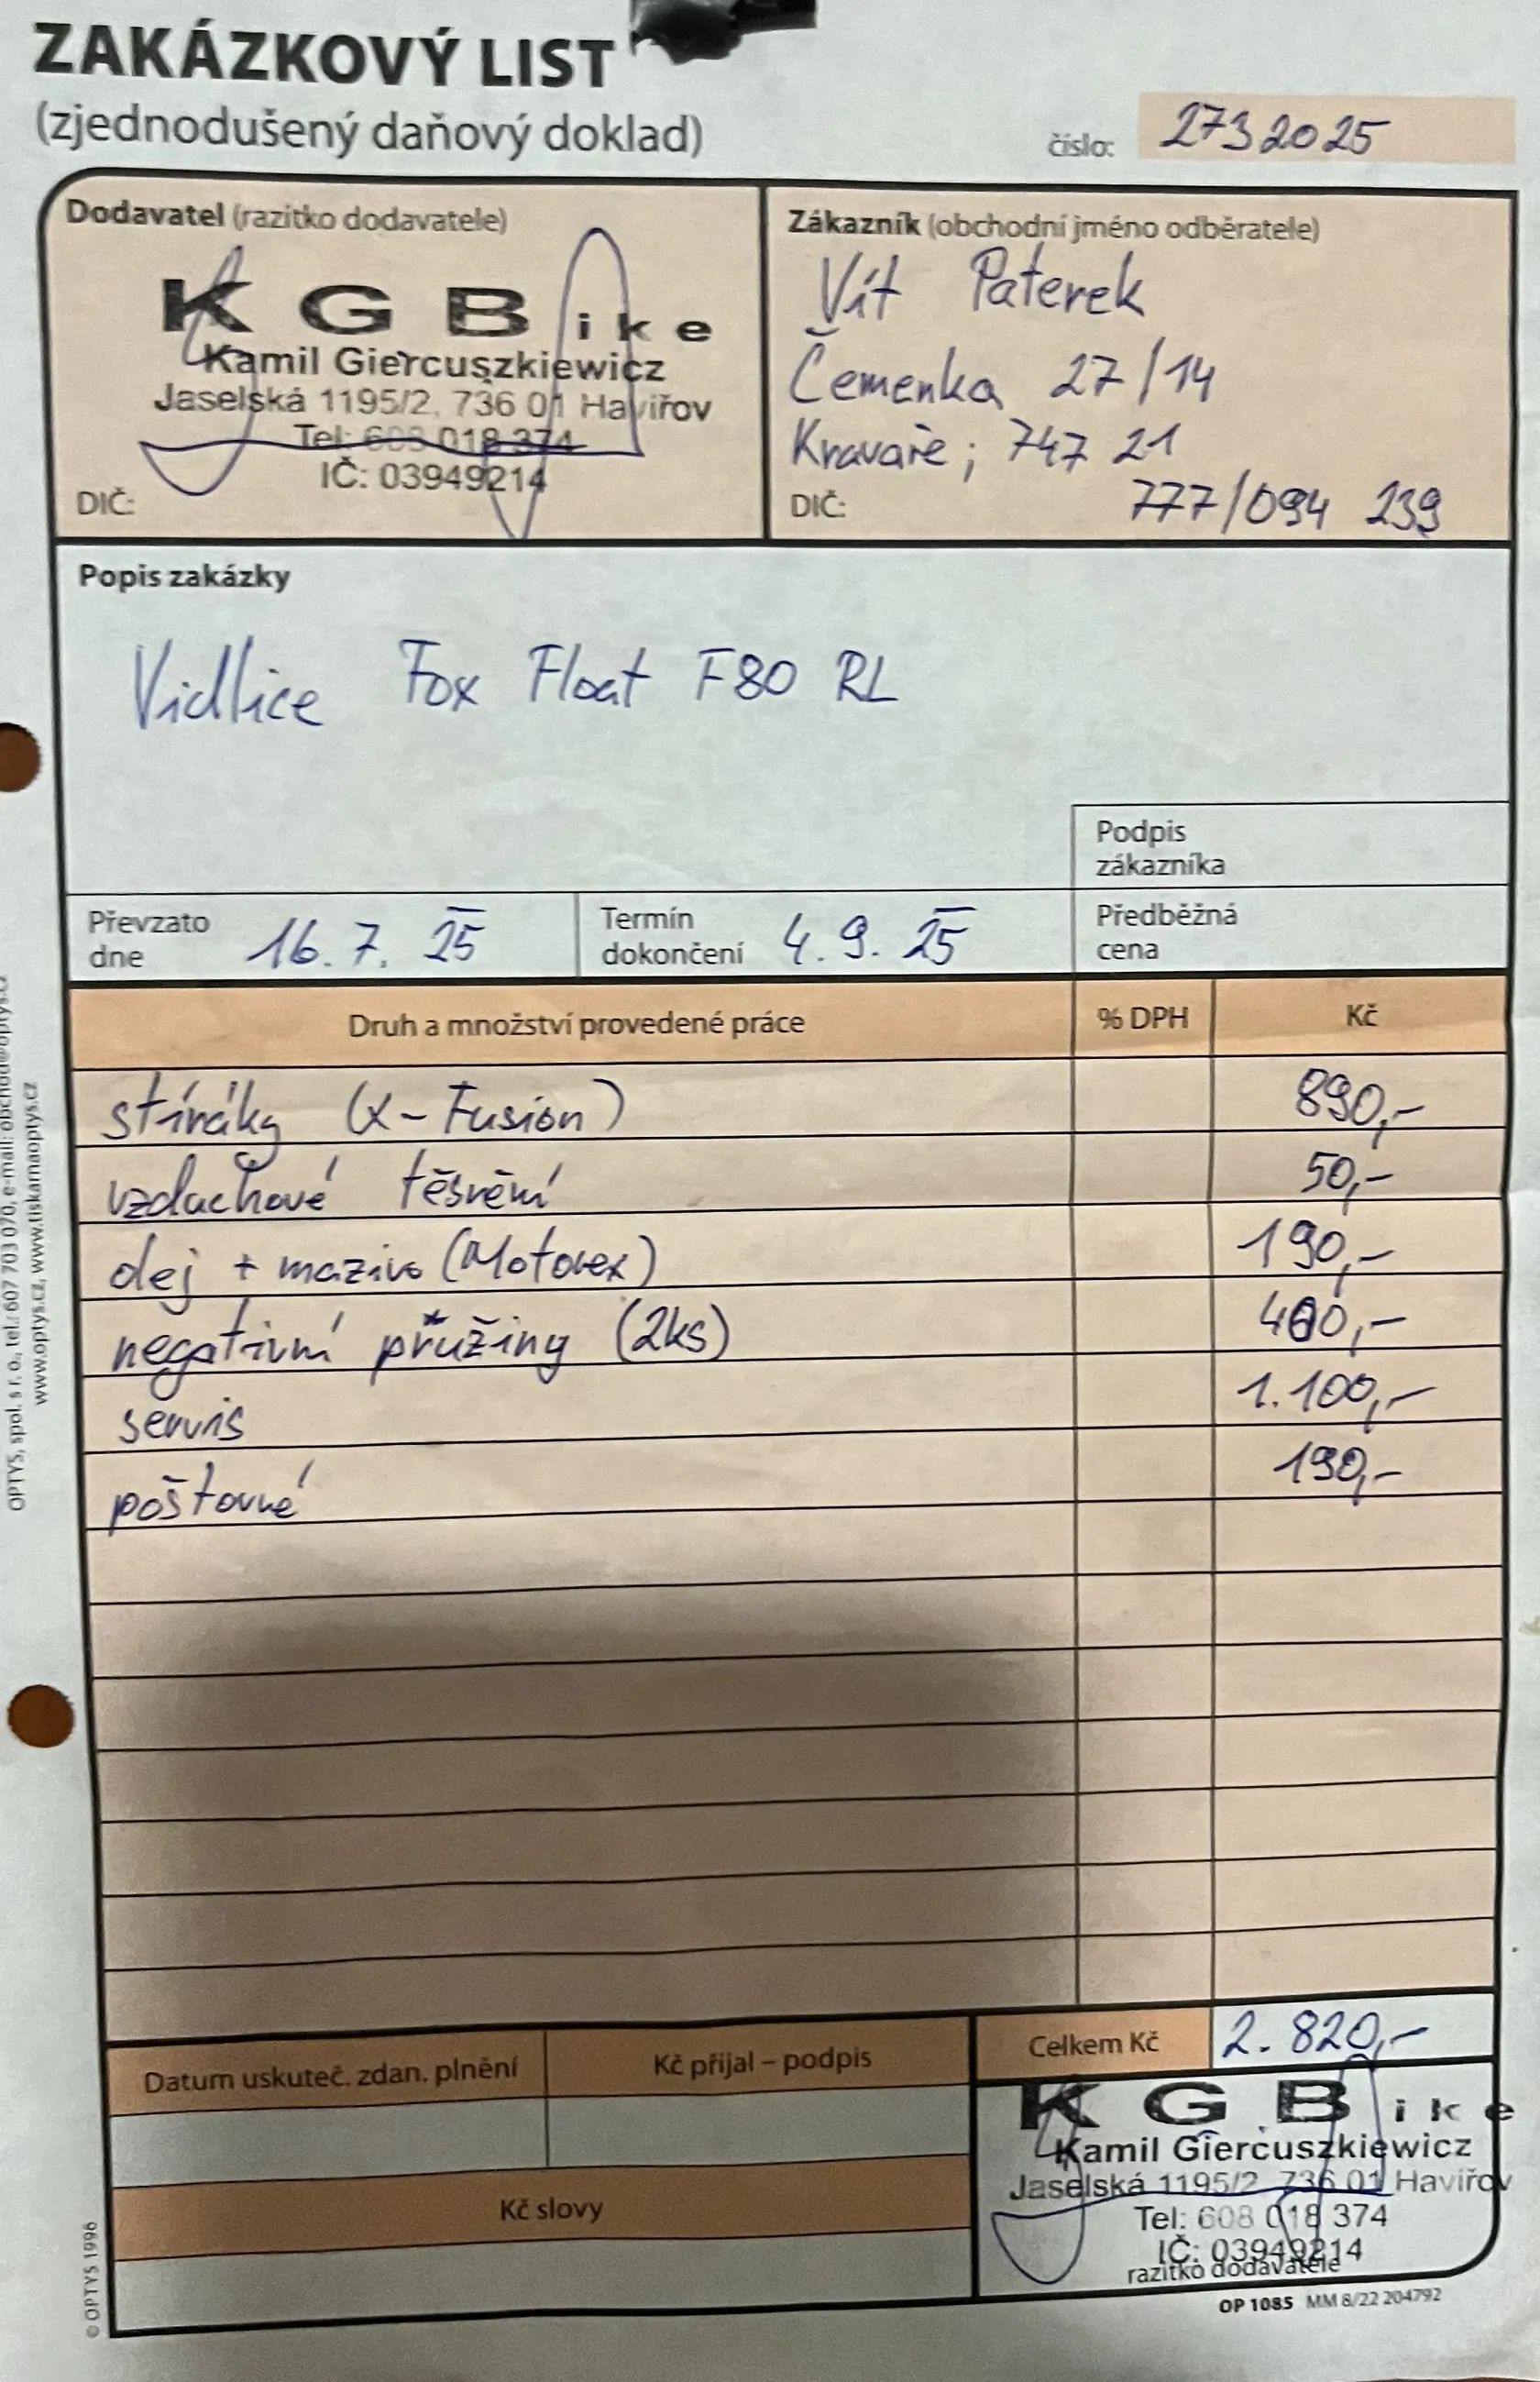 ZAKÁZKOVÝ LIST
(zjednodušený daňový doklad)
číslo: 2732025
Dodavatel (razítko dodavatele)
KGBike
Kamil Giercuszkiewicz
Jaselská 1195/2, 736 01 Havířov
Tel: 608 018 374
IČ: 03949214
DIČ:
Zákazník (obchodní jméno odběratele)
Vít Paterek
Čemenka 27/14
Kravaře; 747 21
DIČ: 777/094 239
Popis zakázky
Vidlice Fox Float F80 RL
Podpis zákazníka
Převzato dne 16. 7. 25
Termín dokončení 4. 9. 25
Předběžná cena
Druh a množství provedené práce % DPH Kč
stíráky (X-Fusion) 890,-
vzduchové těsnění 50,-
olej + mazivo (Motorex) 190,-
negativní pružiny (2ks) 400,-
servis 1.100,-
poštovné 190,-
Celkem Kč 2.820,-
Datum uskuteč. zdan. plnění
Kč přijal – podpis
Kč slovy
KGBike
Kamil Giercuszkiewicz
Jaselská 1195/2, 736 01 Havířov
Tel: 608 018 374
IČ: 03949214
razítko dodavatele
OP 1085 MM 8/22 204792
© OPTYS 1996
OPTYS, spol. s r. o., tel.: 607 703 070, e-mail: obchod@optys.cz
www.optys.cz, www.tiskarnaoptys.cz